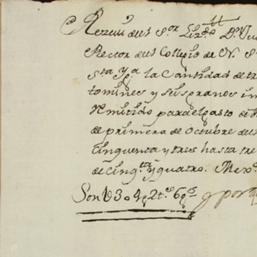 Reciví del S.or Liz.do D.n
Rector del Collegio de N. S.
la Cantidad de
tomines, y seis granos
remitido para el gasto de
de primero de Octubre del
Cinquenta y tres hasta
de Cinq.ta y quatro. Mex.
Son U304p 2t.s 6g.s